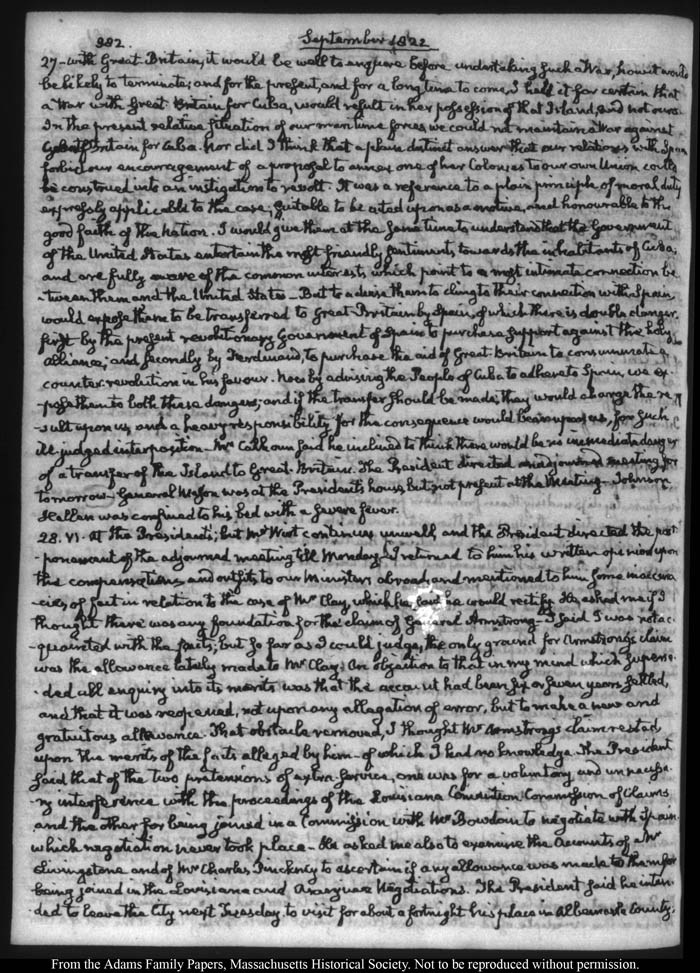 332. September 1822
27- with Great Britain, it would be well to enquire before undertaking such a War, how it would
be likely to terminate; and for the present, and for a long time to come, I held it for certain that
a War with Great Britain for Cuba, would result in her possession of that Island, and not ours.
In the present relative situation of our maritime forces we could not maintain a War against
Great Britain for Cuba. Nor did I think that a plain distinct answer that our relations with Spain
forbid our encouragement of a proposal to annex one of her Colonies to our own Union could
be construed into an instigation to revolt. It was a reference to a plain principle of moral duty
expressly applicable to the case; suitable to be acted upon as a motive, and honourable to the
good faith of the Nation. I would give them at the same time to understand that the Government
of the United States entertain the most friendly sentiments towards the inhabitants of Cuba;
and are fully aware of the common interests which point to a most intimate connection be
-tween them and the United States - But to advise them to cling to their connection with Spain
would expose them to be transferred to Great-Britain by Spain, of which there is double danger.
first by the present revolutionary Government of Spain to purchase support against the holy
alliance; and secondly by Ferdinand, to purchase the aid of Great Britain to consummate a
counter-revolution in his favour. Now by advising the People of Cuba to adhere to Spain, we ex
-pose them to both these dangers; and if the transfer should be made, they would charge the re
-sult upon us, and a heavy responsibility for the consequence would bear upon us, for such
ill-judged interposition - Mr Calhoun said he inclined to think there would be no immediate danger
of a transfer of the Island to Great-Britain. The President directed an adjourned meeting for
tomorrow - General Mason was at the President's house, but not present at the Meeting - Johnson
Hellen was confined to his bed with a severe fever.
28. VI. At the President's; but Mr Wirt continues unwell, and the President directed the post
-ponement of the adjourned meeting till Monday. I returned to him his written opinion upon
the compensations and outfits to our Ministers abroad, and mentioned to him some inaccura
-cies of fact in relation to the case of Mr Clay, which he said he would rectify. He asked me if I
thought there was any foundation for the claim of General Armstrong - I said I was not ac
-quainted with the facts; but so far as I could judge, the only ground for Armstrong's claim
was the allowance lately made to Mr Clay: An objection to that in my mind which superse
-ded all enquiry into its merits was that the account had been six or seven years settled,
and that it was reopened, not upon any allegation of error, but to make a new and
gratuitous allowance. That obstacle removed, I thought Mr Armstrong's claim rested
upon the merits of the facts alleged by him - of which I had no knowledge. The President
said that of the two pretensions of extra-service, one was for a voluntary and unnecessa
-ry interference with the proceedings of the Louisiana Convention Commission of Claims
and the other for being joined in a Commission with Mr Bowdoin to negotiate with Spain
which negotiation never took place - He asked me also to examine the Accounts of Mr
Livingstone and of Mr Charles Pinckney to ascertain if any allowance was made to them for
being joined in the Louisiana and Aranjuez Negotiations. The President said he inten
-ded to leave the City next Tuesday to visit for about a fortnight his place in Albemarle County;
From the Adams Family Papers, Massachusetts Historical Society. Not to be reproduced without permission.